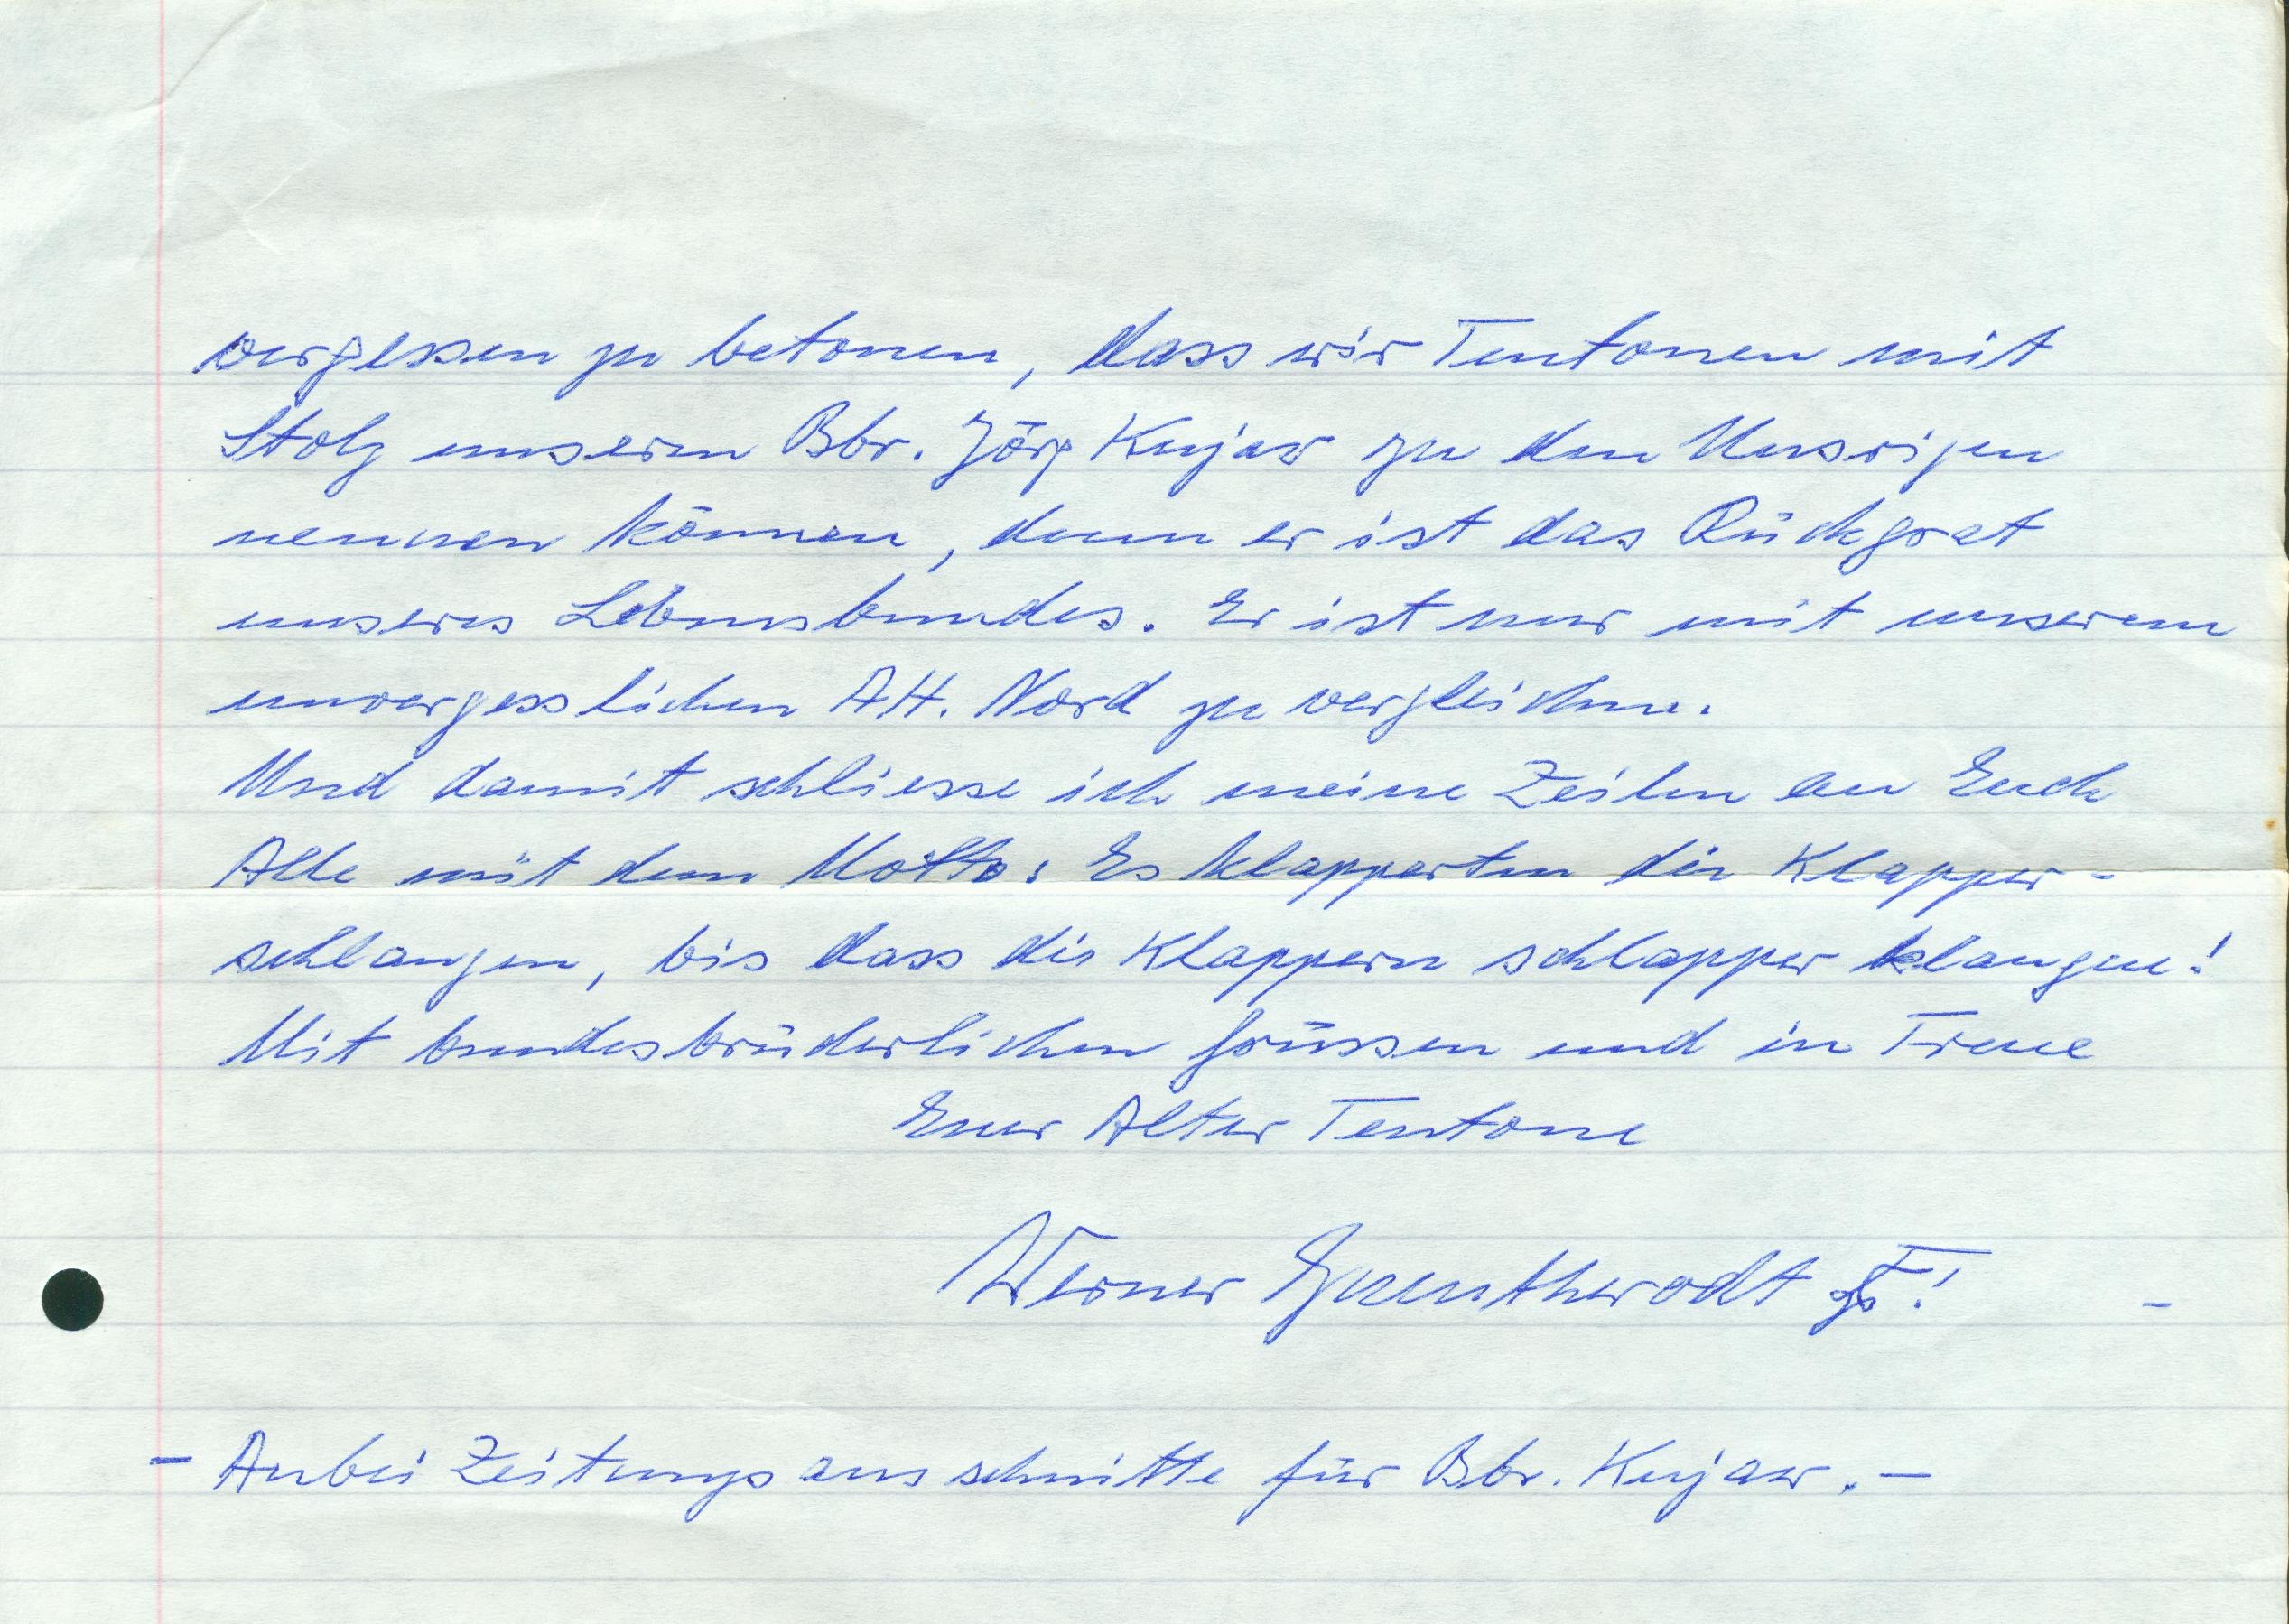 vergessen zu betonen, dass wir Teutonen mit
Stolz unserm Bbr. Jörg Kujaw zu den Unsrigen
nennen können, denn er ist das Rückgrat
unseres Lebensbundes. Er ist nur mit unserem
unvergesslichen AH. Nord zu vergleichen.
Und damit schliesse ich meine Zeilen an Euch
Alle mit dem Motto: Es klapperten die Klapper-
schlangen, bis dass die Klappern schlapper klangen!
Mit bundesbrüderlichen Grüssen und in Treue
Euer Alter Teutone
Werner
- Anbei Zeitungsausschnitte für Bbr. Kujaw. -